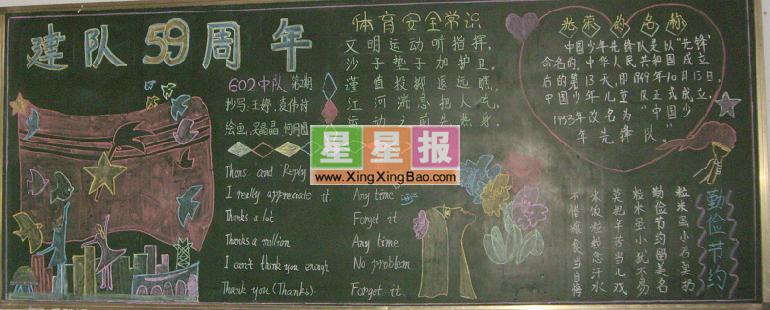 建队59周年
602中队 第2期
抄写:王婷,袁伟诗
绘画:吴晶晶 柯月圆
体育安全常识
文明运动听指挥,
沙子垫子加护卫.
谨值投掷医远瞧,
江河湍急把人
运动之前先热身.
光荣的名称
中国少年先锋队是以"先锋"
命名的,中华人民共和国成立
后的第13天,即1949年10月13日,
中国少年儿童
1953年
改名为"中国少
年先锋队"
Thans and Reply
I really appreciate it. Any time
Thanks a lot Forget it
Thanks a million Any time
I can't thank you enough No problem
Thank you (Thanks) Forget it
勤俭节约
粒米虽小君莫扔
勤俭节约留美名
粒米虽小犹不易
莫把辛苦当儿戏
米饭粒粒念汗水
不惜粮食当自得
星星报
www.XingXingBao.com